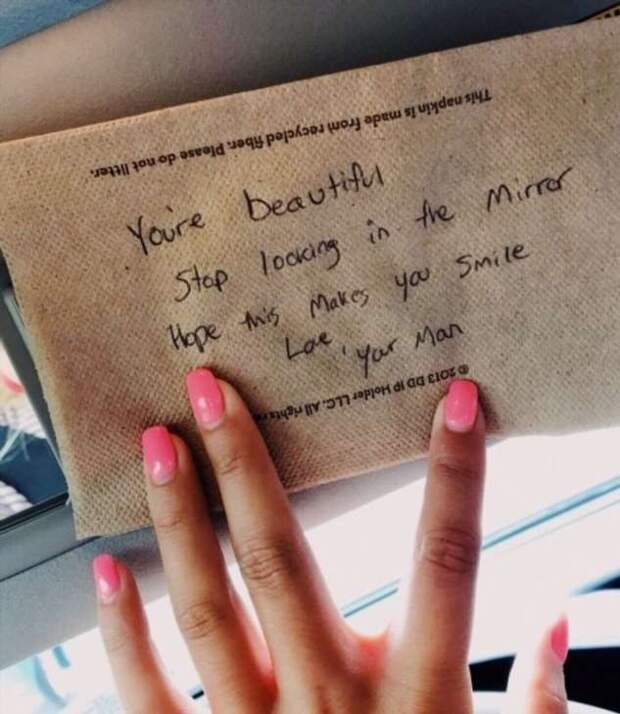 This napkin is made from recycled fiber. Please do not litter.
You're beautiful
Stop looking in the Mirror
Hope this Makes you Smile
Love, your Man
© 2013 DD IP Holder LLC. All rights